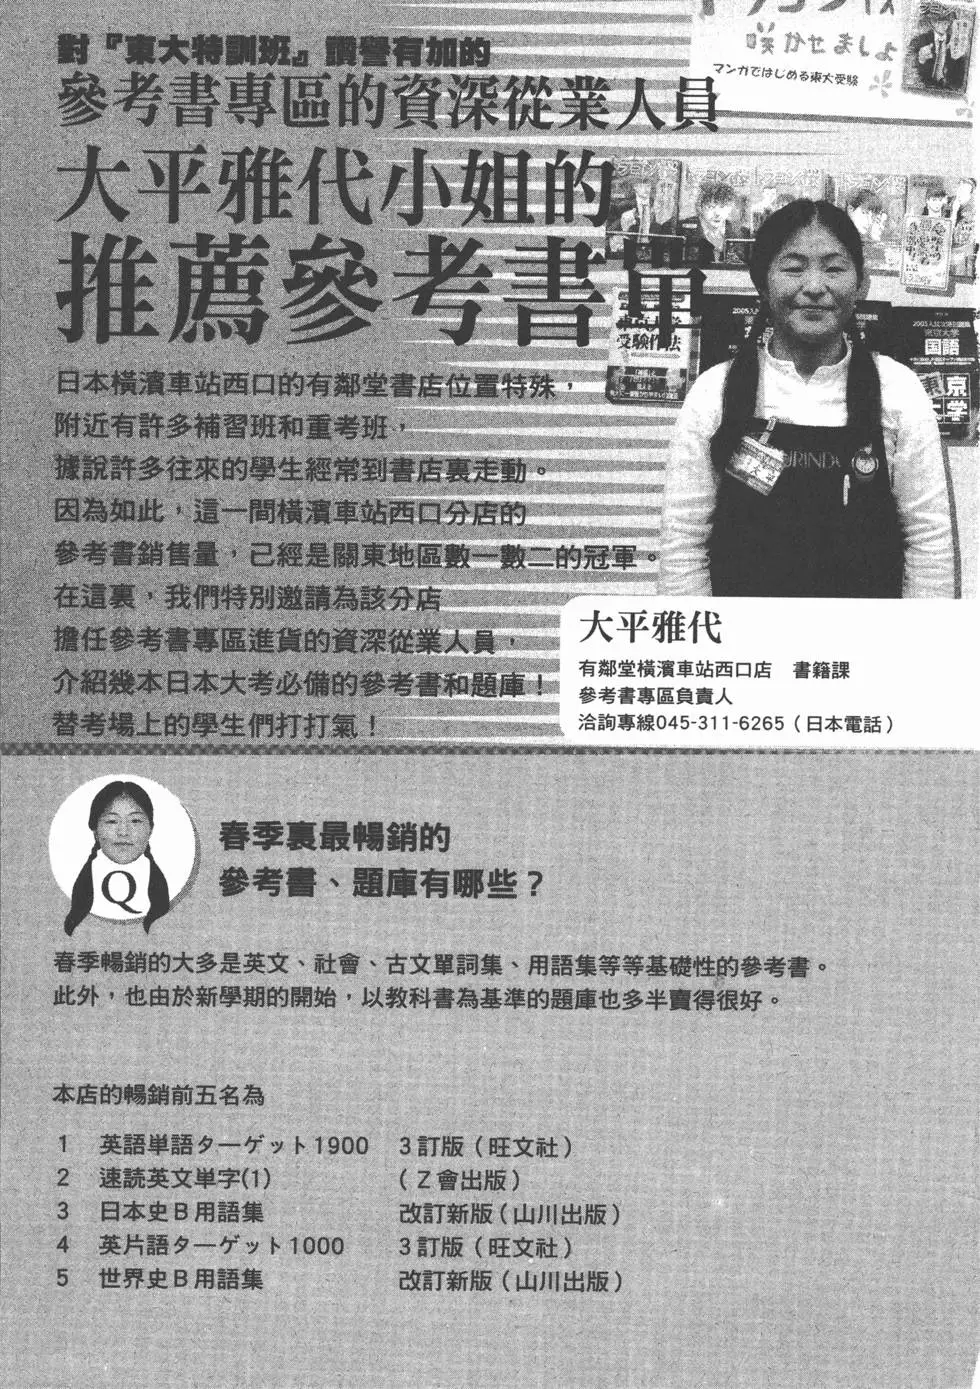 對『東大特訓班』讚譽有加的
參考書專區的資深從業人員
大平雅代小姐的
推薦參考書單
咲かせましょ
マンガではじめる東大受験
受験作法
国語
東京
大学
日本橫濱車站西口的有鄰堂書店位置特殊，
附近有許多補習班和重考班，
據說許多往來的學生經常到書店裏走動。
因為如此，這一間橫濱車站西口分店的
參考書銷售量，已經是關東地區數一數二的冠軍。
在這裏，我們特別邀請為該分店
擔任參考書專區進貨的資深從業人員，
介紹幾本日本大考必備的參考書和題庫！
替考場上的學生們打打氣！
大平雅代
有鄰堂橫濱車站西口店　書籍課
參考書專區負責人
洽詢專線045-311-6265（日本電話）
Q
春季裏最暢銷的
參考書、題庫有哪些？
春季暢銷的大多是英文、社會、古文單詞集、用語集等等基礎性的參考書。
此外，也由於新學期的開始，以教科書為基準的題庫也多半賣得很好。
本店的暢銷前五名為
1　英語単語ターゲット1900　3訂版（旺文社）
2　速読英文単字(1)　（Z會出版）
3　日本史B用語集　改訂新版（山川出版）
4　英片語ターゲット1000　3訂版（旺文社）
5　世界史B用語集　改訂新版（山川出版）